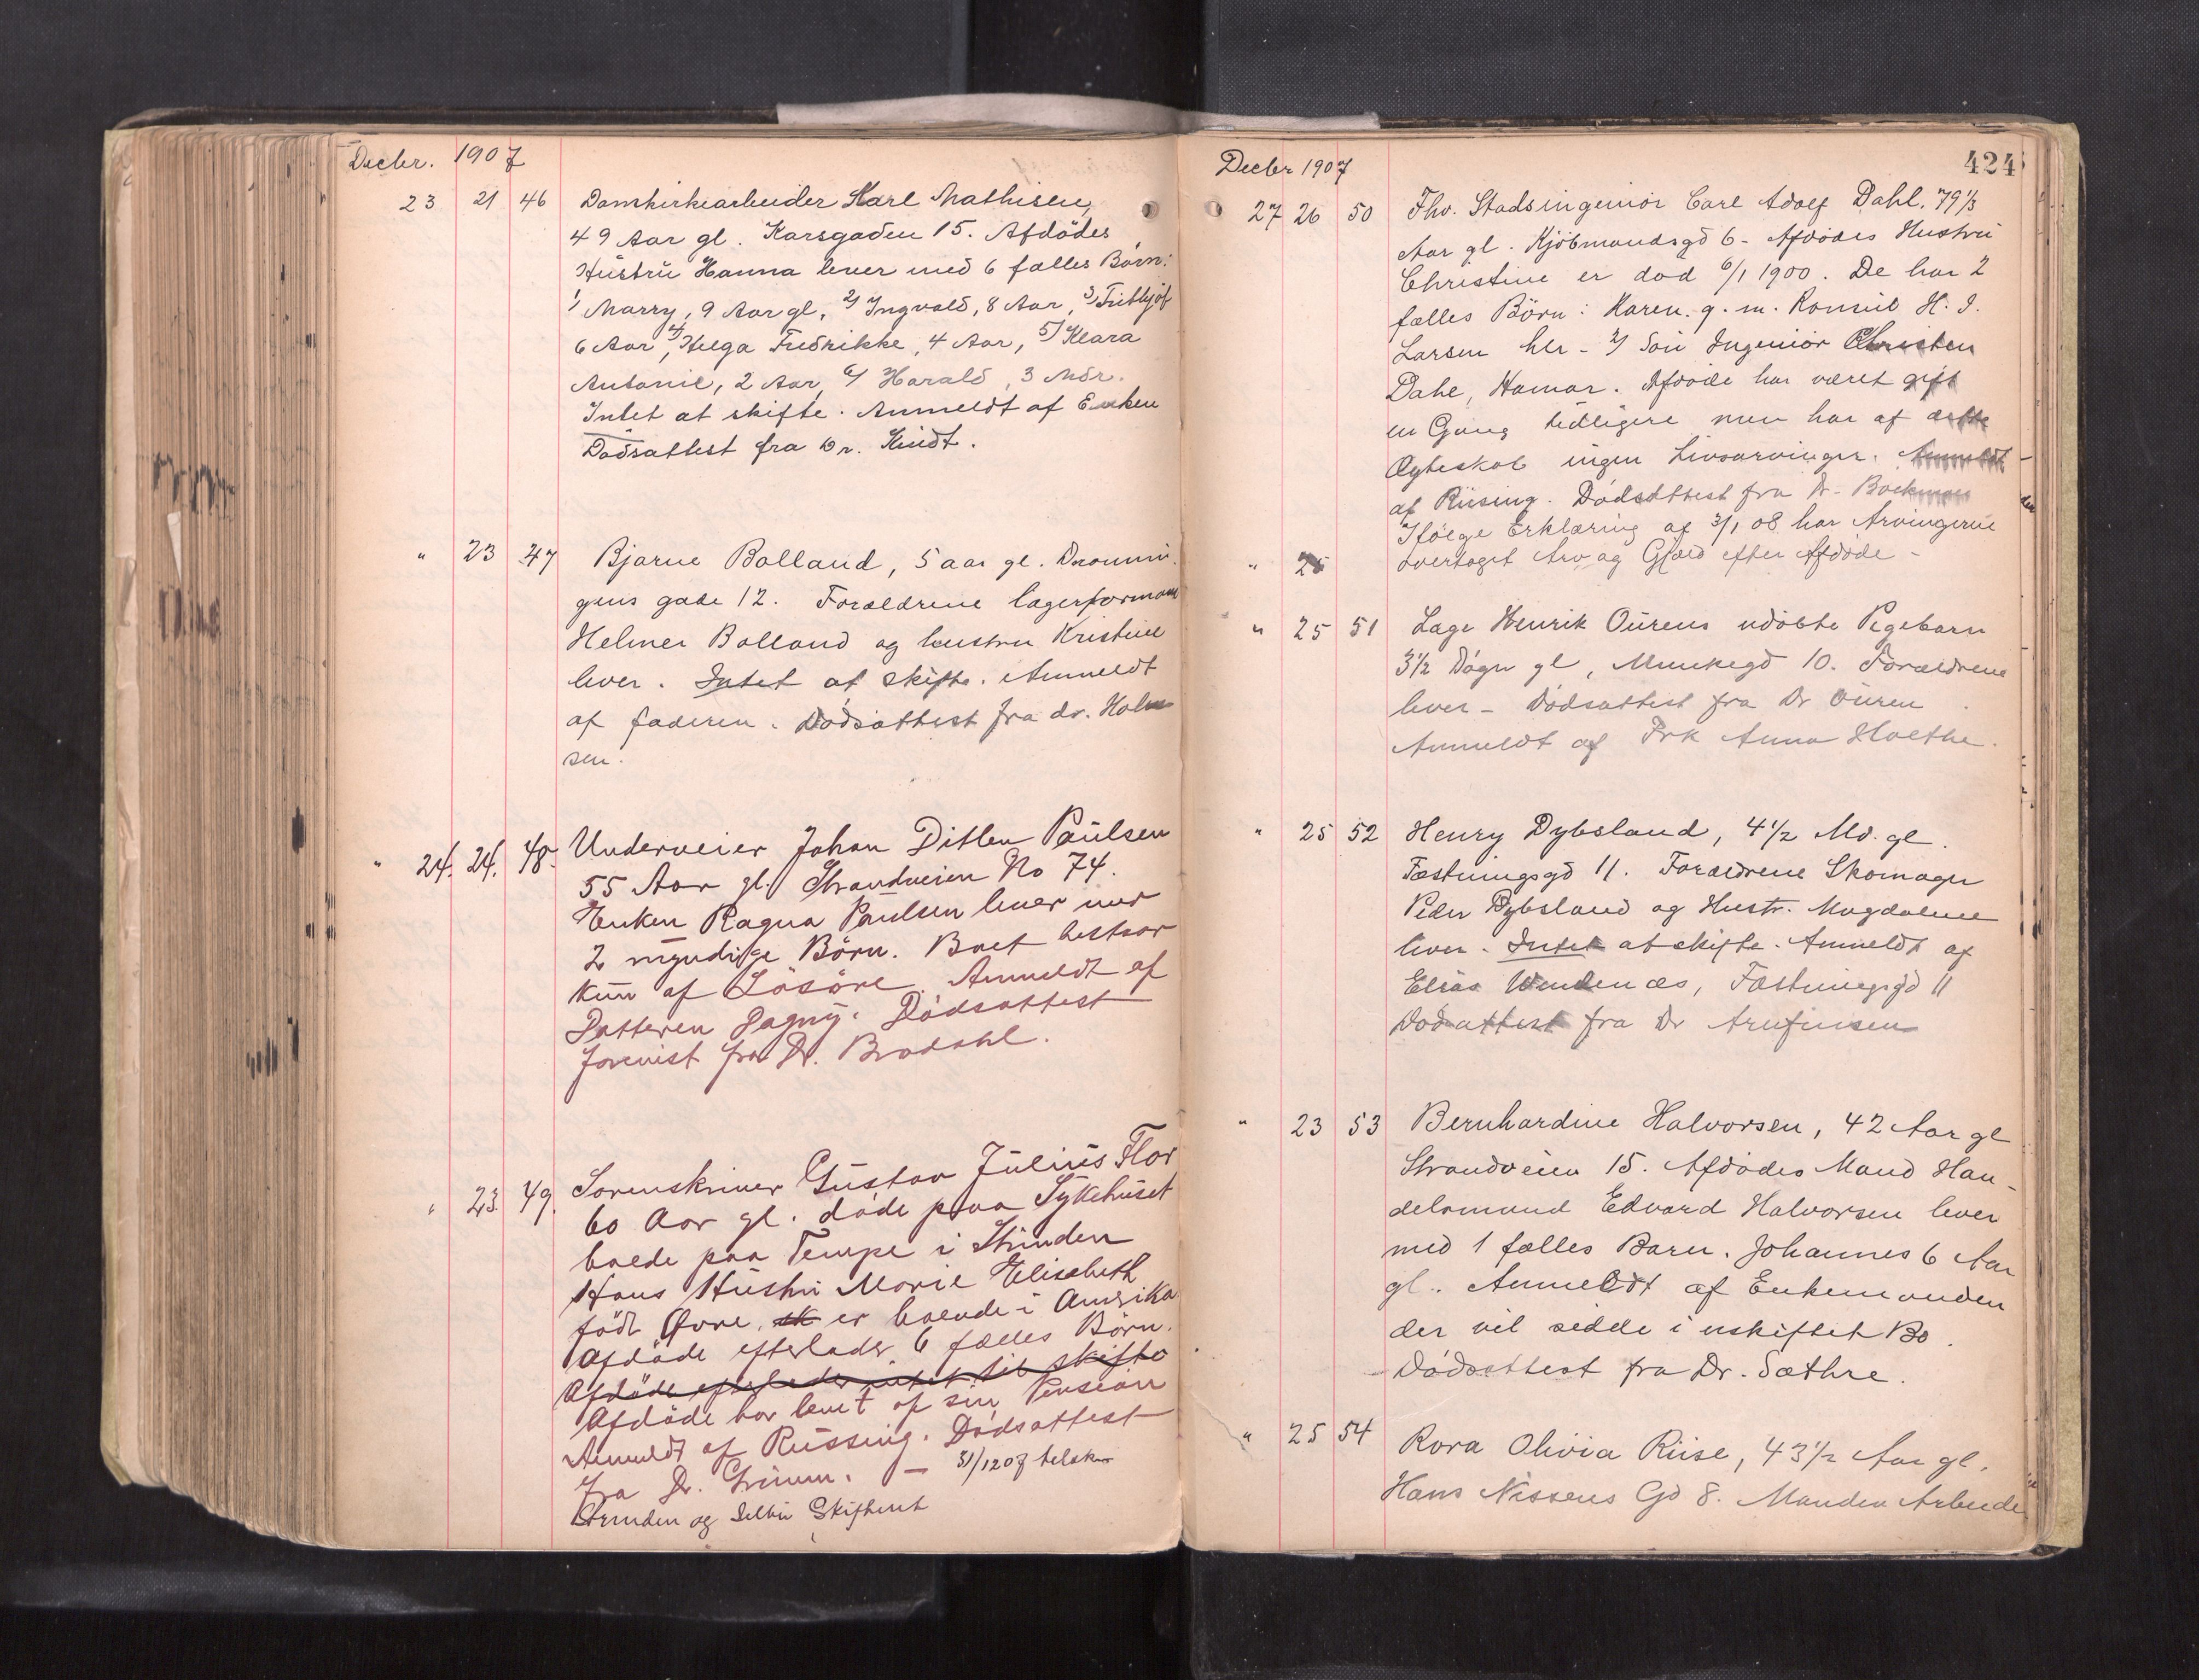 Decbr. 1907
23 21 46 Domkirkearbeider Karl Mathisen,
49 Aar gl. Korsgaden 15. Afdödes
Hustru Hanna lever med 6 fælles Börn:
1 Marry, 9 Aar gl, 2) Ingvald, 8 Aar, 3) Fritthjöf
6 Aar, 4) Helga Fredrikke, 4 Aar, 5) Klara
Antonie, 2 Aar, 6) Harald, 3 Mdr.
Intet at skifte. Anmeldt af Enken
Dødsattest fra Dr. Kindt.
" 23 47 Bjarne Bolland, 5 aar gl. Dronnin
gens gade 12. Forældrene lagerformand
Helmer Bolland og hustru Kristine
lever. Intet at skifte. Anmeldt
af faderen. Dødsattest fra dr. Holm
sen.
" 24. 24. 48. Underveier Johan Ditlev Paulsen
55 Aar gl. Strandveien No 74.
Enken Ragna Paulsen lever med
2 myndige Börn. Boet bestaar
kun af Lösöre. Anmeldt af
Datteren Dagny. Dödsattest
forevist fra Dr. Brodahl.
" 23. 49. Sorenskriver Gustav Julius Flor
60 Aar gl. döde paa Sykehuset
boede paa Tempe i Strinden
Hans Hustru Marie Elisabeth
födt Øvre, er boende i Amerika
Afdöde efterlader 6 fælles Börn.
Afdöde efterlader intet til skifte
Afdöde har levet af sin Pension
Anmeldt af Riising. Dödsattest
fra Dr. Grimm. — 31/12 07 telakr
Strinden og Selbu Skifteret
Decbr 1907
424
27 26 50 Fhv. Stadsingeniör Carl Adolf Dahl. 79 1/3
Aar gl. Kjöbmandsgd 6 - Afdödes Hustru
Christine er död 6/1 1900. De har 2
fælles Börn: Karen. g. m. Konsul H. J.
Larsen hr - 2) Sön Ingeniör Christen
Dahl, Hamar. Afdöde har været gift
en Gang tidligere men har af dette
Ægteskab ingen Livsarvinger. Anmeldt
af Riising. Dödsattest fra Dr. Bockman
Ifölge Erklæring af 3/1 08 har Arvingerne
" 25 overtaget Arv og Gjæld efter Afdöde -
" 25 51 Læge Henrik Ourens udöbte Pigebarn
3 1/2 Dögn gl, Munkegd 10. Forældrene
lever - Dödsattest fra Dr Ouren
Anmeldt af Frk Anna Holthe.
" 25 52 Henry Dybsland, 4 1/2 Md. gl.
Fæstningsgd 11. Forældrene Skomager
Peder Dybsland og Hustr. Magdalene
lever. Intet at skifte. Anmeldt af
Elias, Fæstningsgd 11
Dödsattest fra Dr Arnfinsen
" 23 53 Bernhardine Halvorsen, 42 Aar gl
Strandveien 15. Afdödes Mand Han-
delsmand Edvard Halvorsen lever
med 1 fælles Barn. Johannes 6 Aar
gl.. Anmeldt af Enkemanden
der vil sidde i uskiftet Bo.
Dödsattest fra Dr. Sæthre.
" 25 54 Rora Olivia Riise, 43 1/2 Aar gl.
Hans Nissens Gd 8. Manden Arbeide